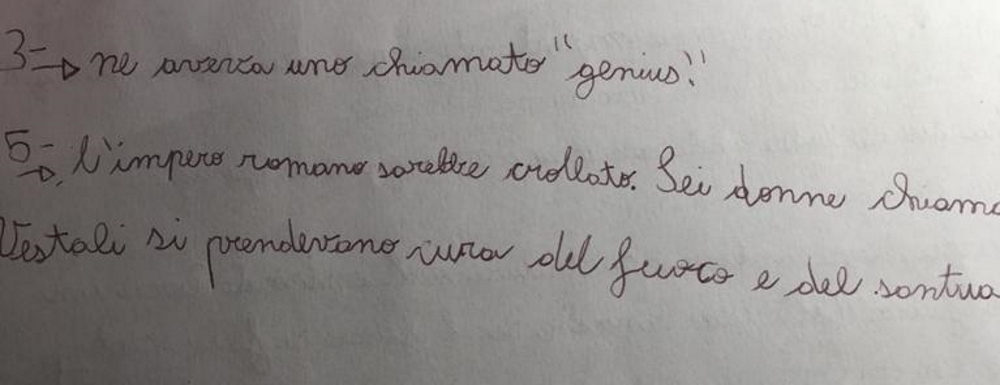 3-→ ne aveva uno chiamato "genius".
5-→ l'impero romano sarebbe crollato. Sei donne chiama
Vestali si prendevano cura del fuoco e del santua